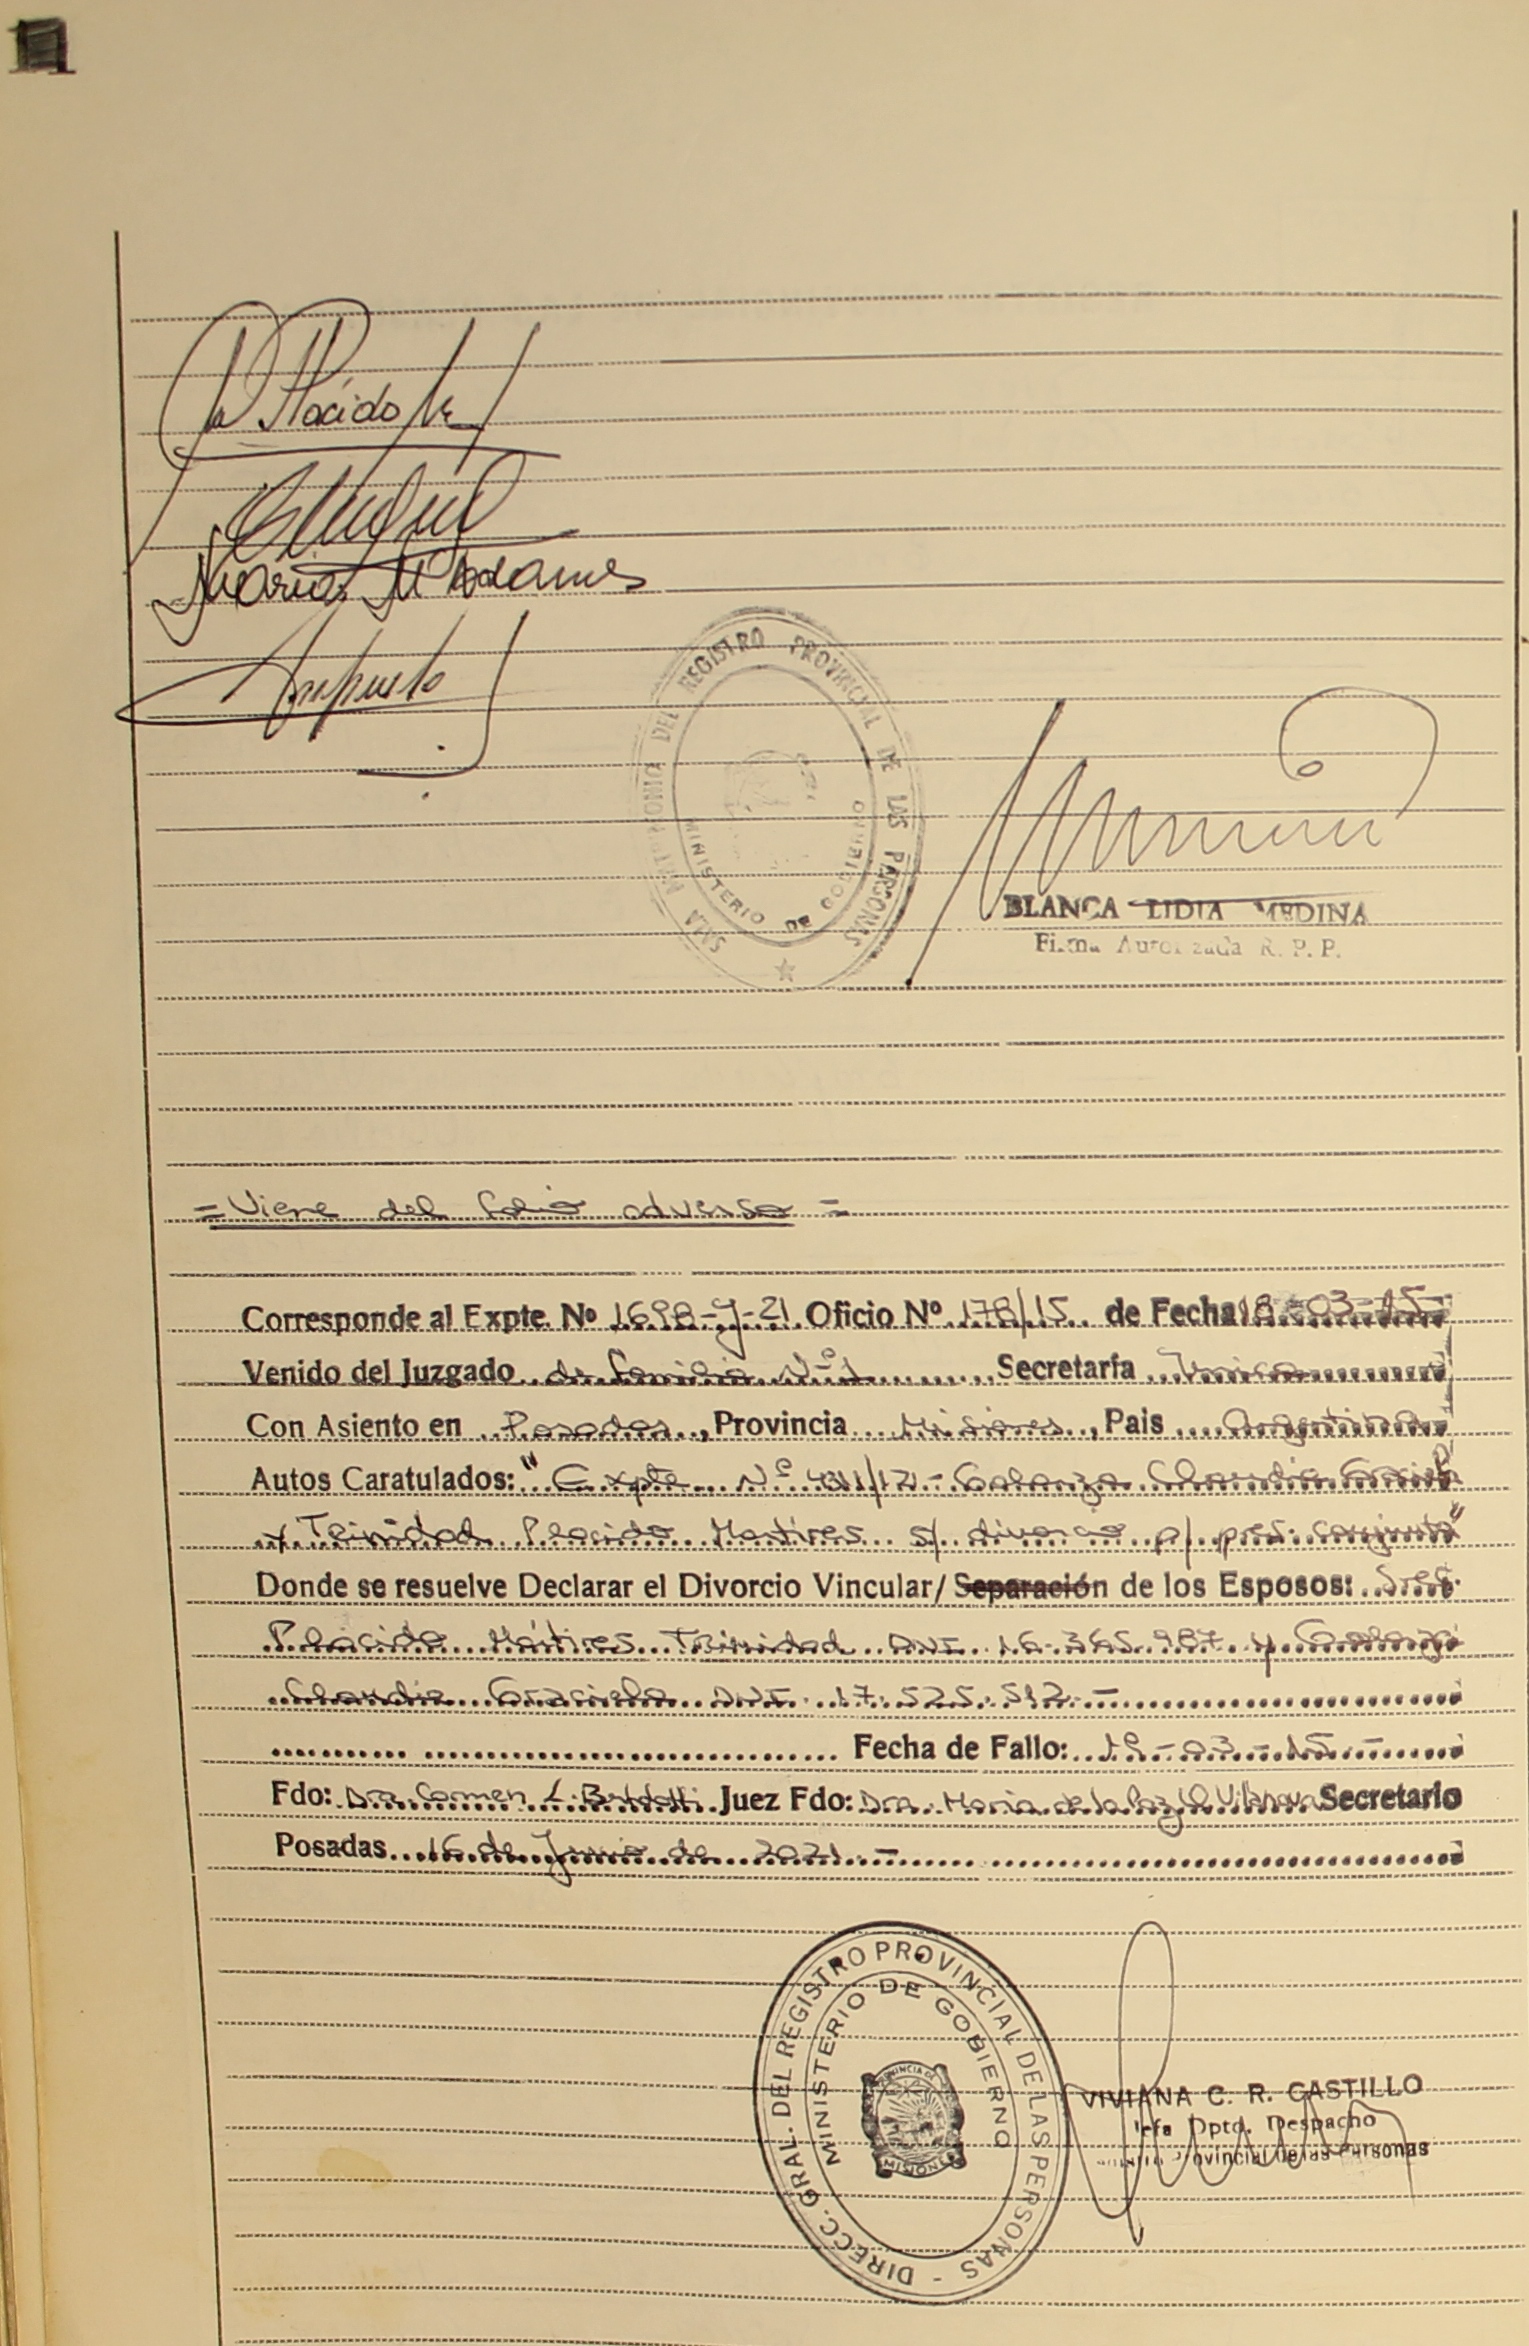 Plácido
SALA MATRIMONIO DEL REGISTRO PROVINCIAL DE LAS PERSONAS
MINISTERIO DE GOBIERNO
BLANCA LIDIA MEDINA
Firma Autorizada R. P. P.
= Viene del folio adverso =
Corresponde al Expte. Nº 1698-J-21 Oficio Nº 178/15 de Fecha 18-03-15-
Venido del Juzgado de Familia Nº 1 Secretaría Unica
Con Asiento en Posadas, Provincia Misiones, Pais Argentina
Autos Caratulados: " Expte Nº /12.- Claudia Graciela
y Trinidad Placido Martires s/ divorcio p/ pres. conjunta"
Donde se resuelve Declarar el Divorcio Vincular/ Separación de los Esposos: Sres.
Plácido Mártires Trinidad DNI 16.365.987 y
Claudia Graciela DNI. 17.525.512.-
Fecha de Fallo: -03-15.-
Fdo: Dra. Carmen Juez Fdo: Dra. Maria de la Paz Secretario
Posadas 16 de Junio de 2021.-
DIRECC. GRAL. DEL REGISTRO PROVINCIAL DE LAS PERSONAS -
MINISTERIO DE GOBIERNO
PROVINCIA DE
MISIONES
VIVIANA C. R. CASTILLO
Jefa Dpto. Despacho
Provincial de las Personas